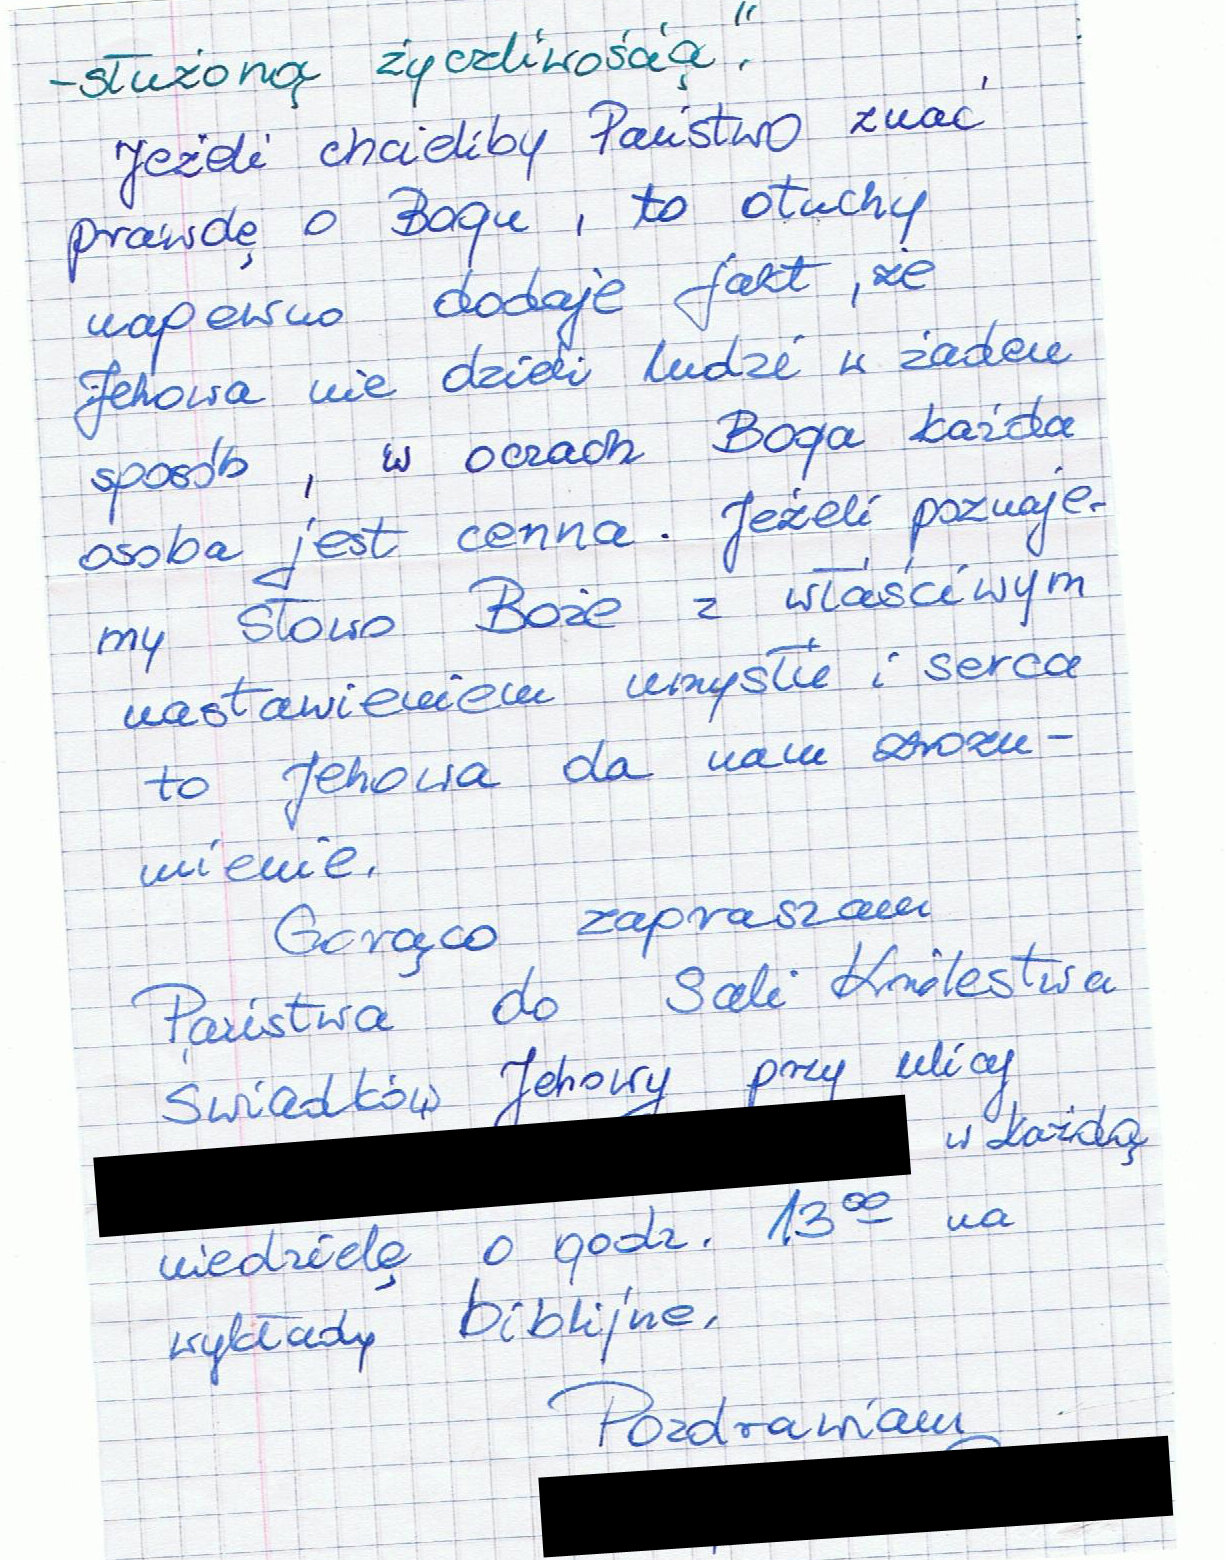 -służoną życzliwością".
Jeżeli chcieliby Państwo znać
prawdę o Bogu, to otuchy
napewno dodaje fakt, że
Jehowa nie dzieli ludzi w żaden
sposób, w oczach Boga każda
osoba jest cenna. Jeżeli poznaje-
my Słowo Boże z właściwym
nastawieniem umysłu i serca
to Jehowa da nam zrozu-
mienie.
Gorąco zapraszam
Państwa do Sali Królestwa
Świadków Jehowy przy ulicy
w każdą
niedzielę o godz. 13⁰⁰ na
wykłady biblijne.
Pozdrawiam